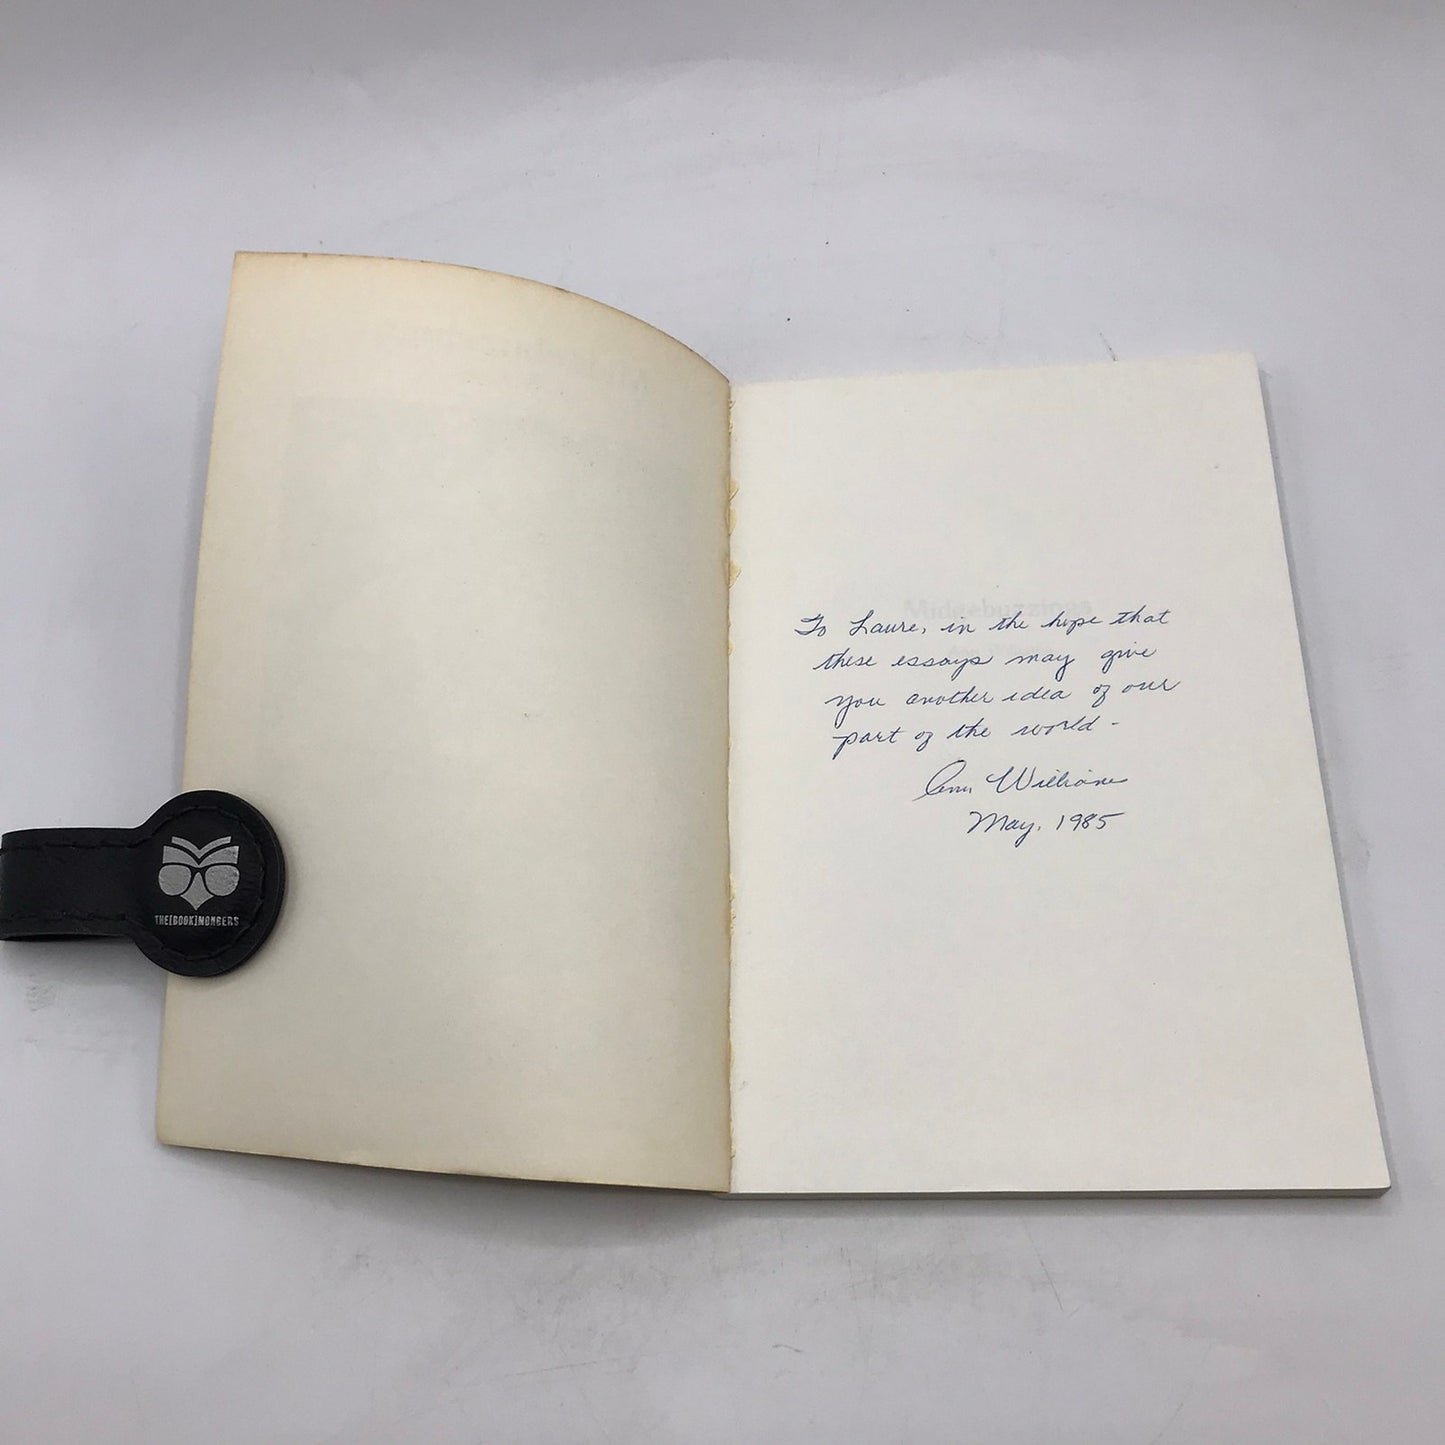 Midgebuzzings
To Laure, in the hope that
these essays may give
you another idea of our
part of the world -
Ann Williams
May, 1985
THE[BOOK]MONGERS